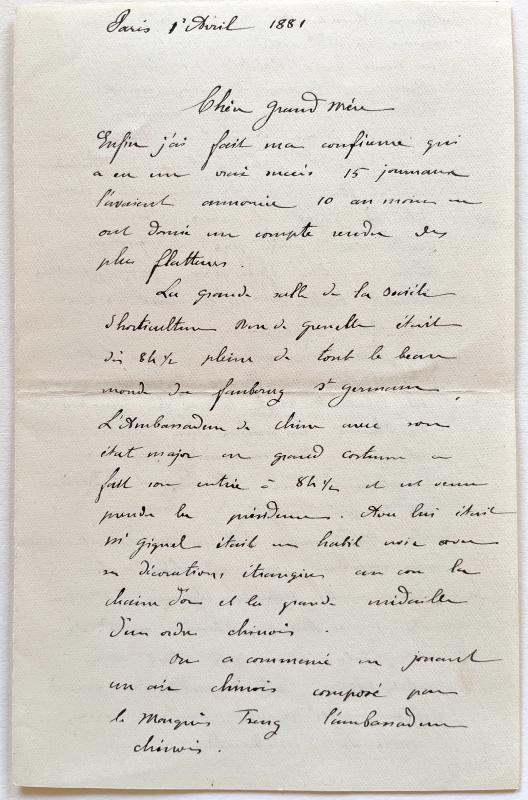 Paris 1r Avril 1881
Chère grand mère
Enfin j'ai fait ma conférence qui
a eu un vrai succès 15 journaux
l'avaient annoncée 10 au moins en
ont donné un compte rendu des
plus flatteurs.
La grande salle de la société
d'horticulture Rue de grenelle était
dès 8h 1/2 pleine de tout le beau
monde du faubourg St germain.
L'Ambassadeur de chine avec son
état major en grand costume a
fait son entrée à 8h 1/2 et est venu
prendre la présidence. Avec lui était
Mr giquel était en habit noir avec
ses décorations étrangères au cou la
chaine d'or et la grande médaille
d'un ordre chinois.
On a commencé en jouant
un air chinois composé par
le Marquis Tseng l'ambassadeur
chinois.